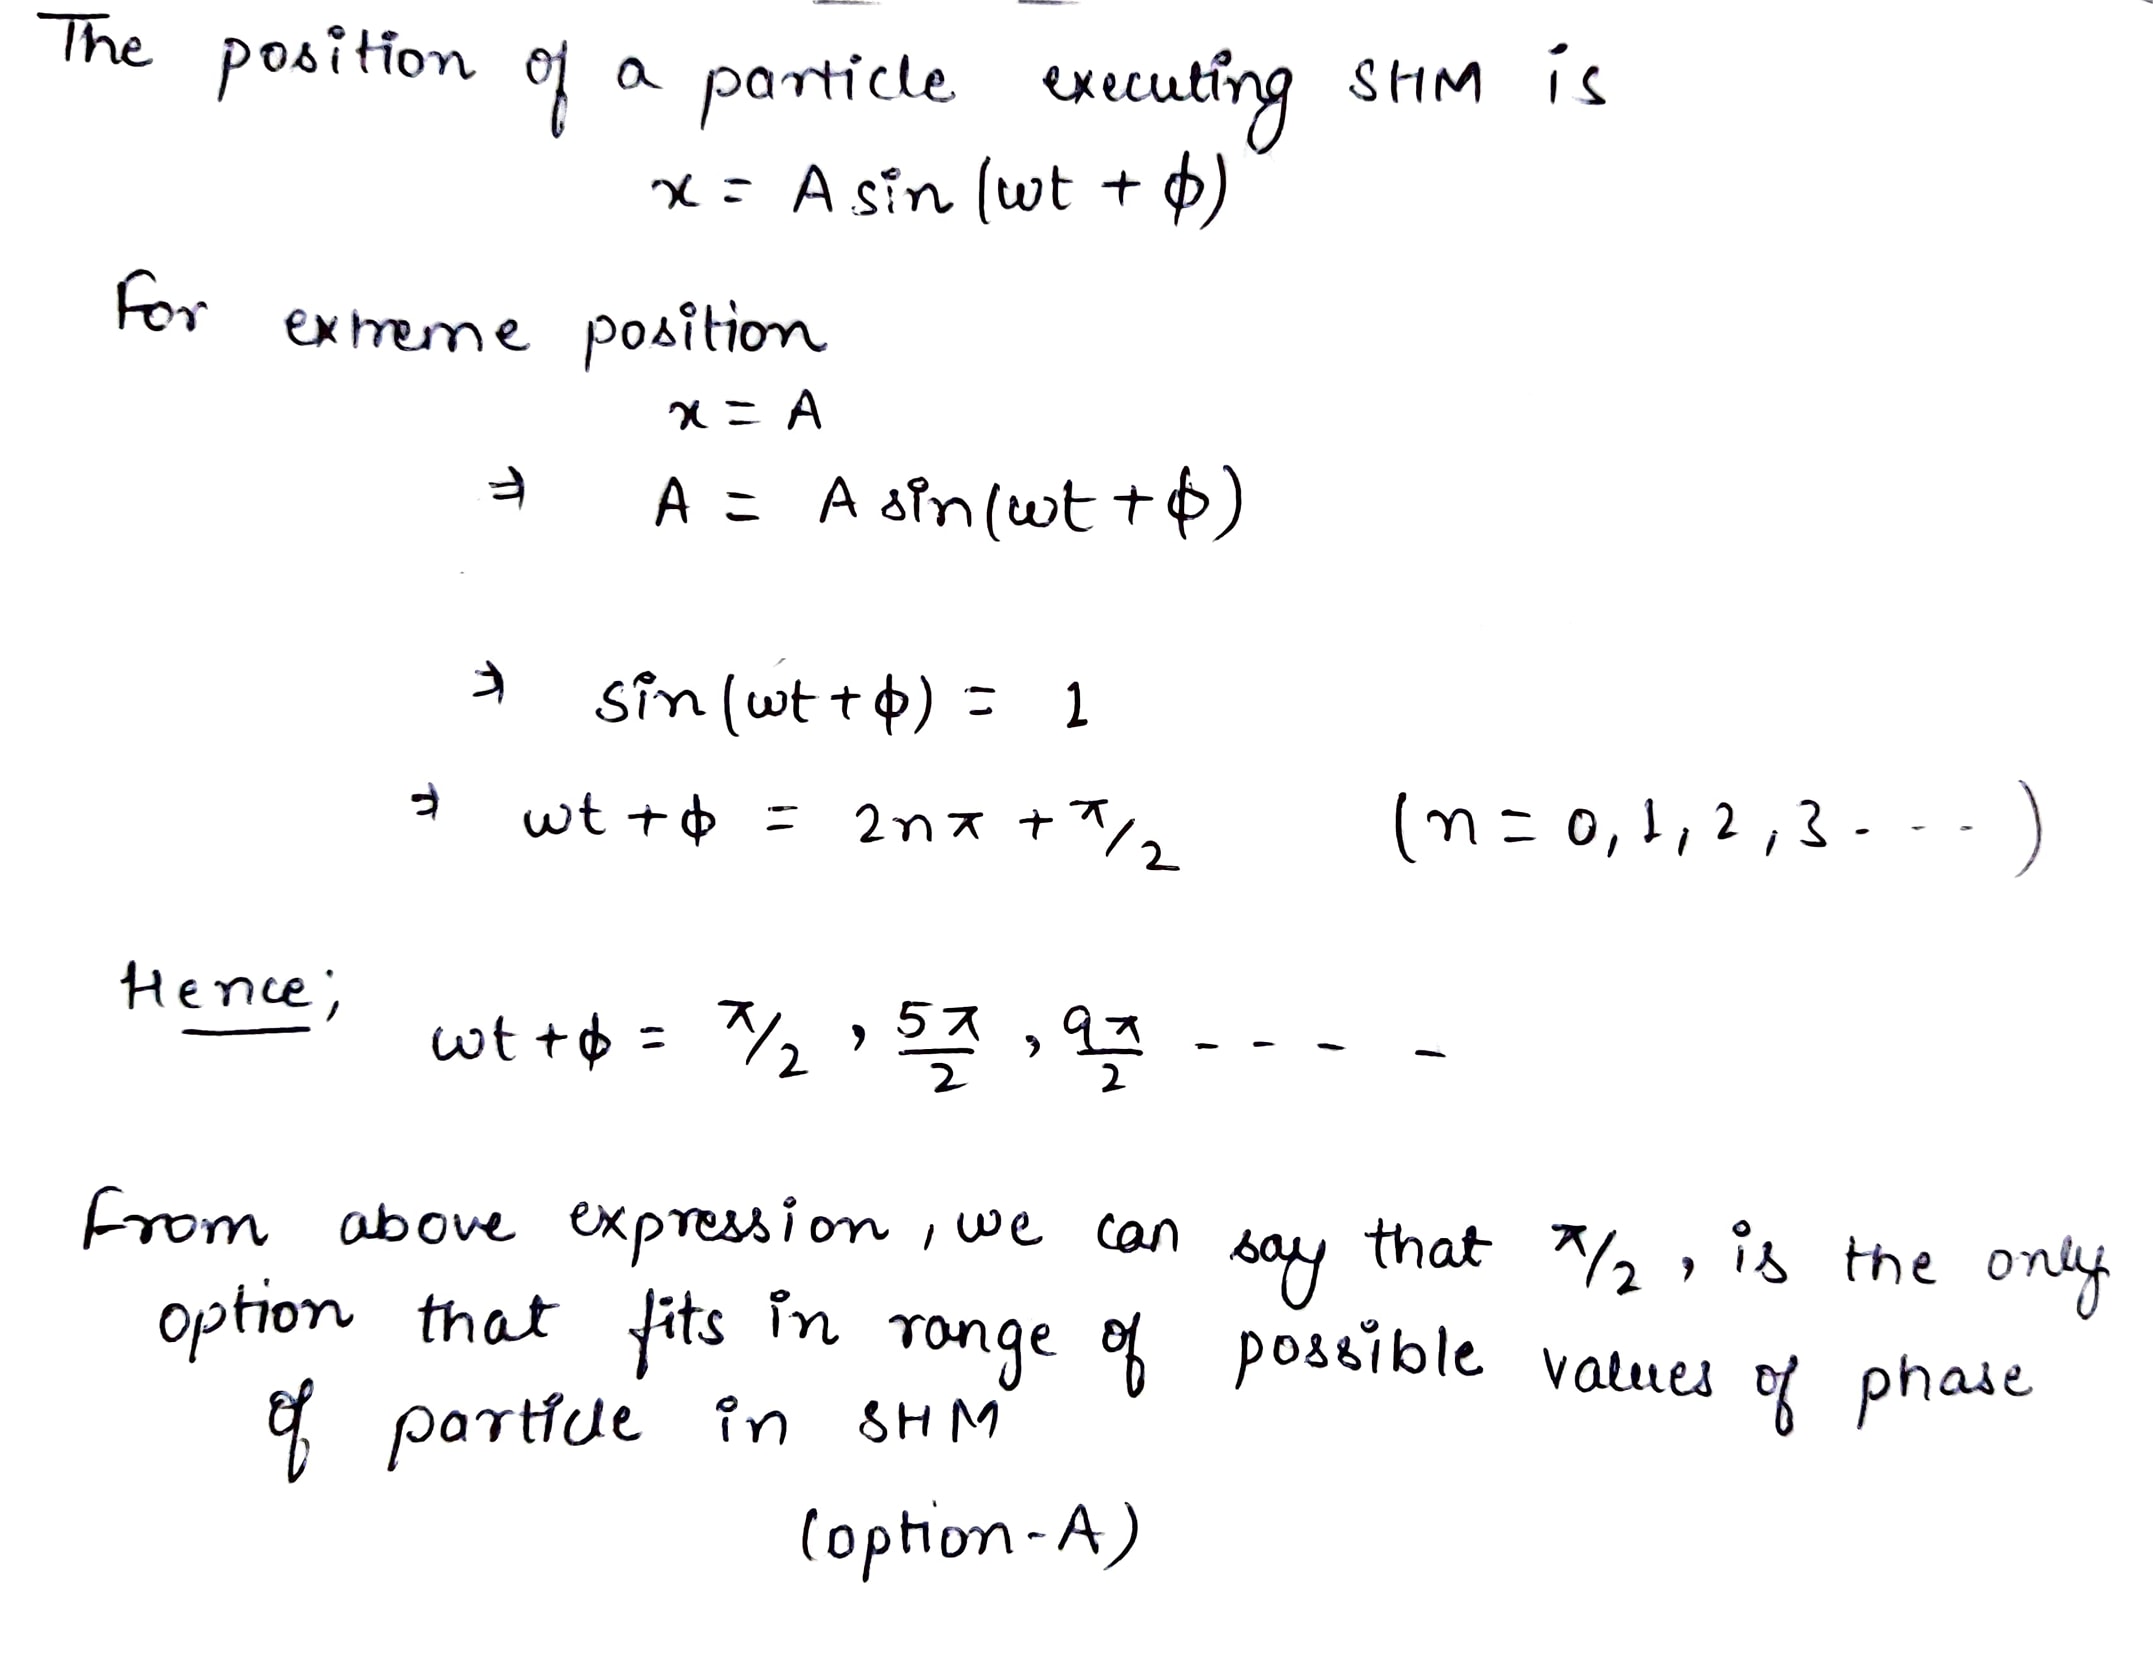 The position of a particle executing SHM is
x = A sin (ωt + φ)
For extreme position
x = A
⇒ A = A sin(ωt + φ)
⇒ sin(ωt + φ) = 1
⇒ ωt + φ = 2nπ + π/2 (n = 0, 1, 2, 3 - - - -)
Hence;
ωt + φ = π/2 , 5π/2 , 9π/2 - - - -
From above expression, we can say that π/2 , is the only
option that fits in range of possible values of phase
of particle in SHM
(option-A)